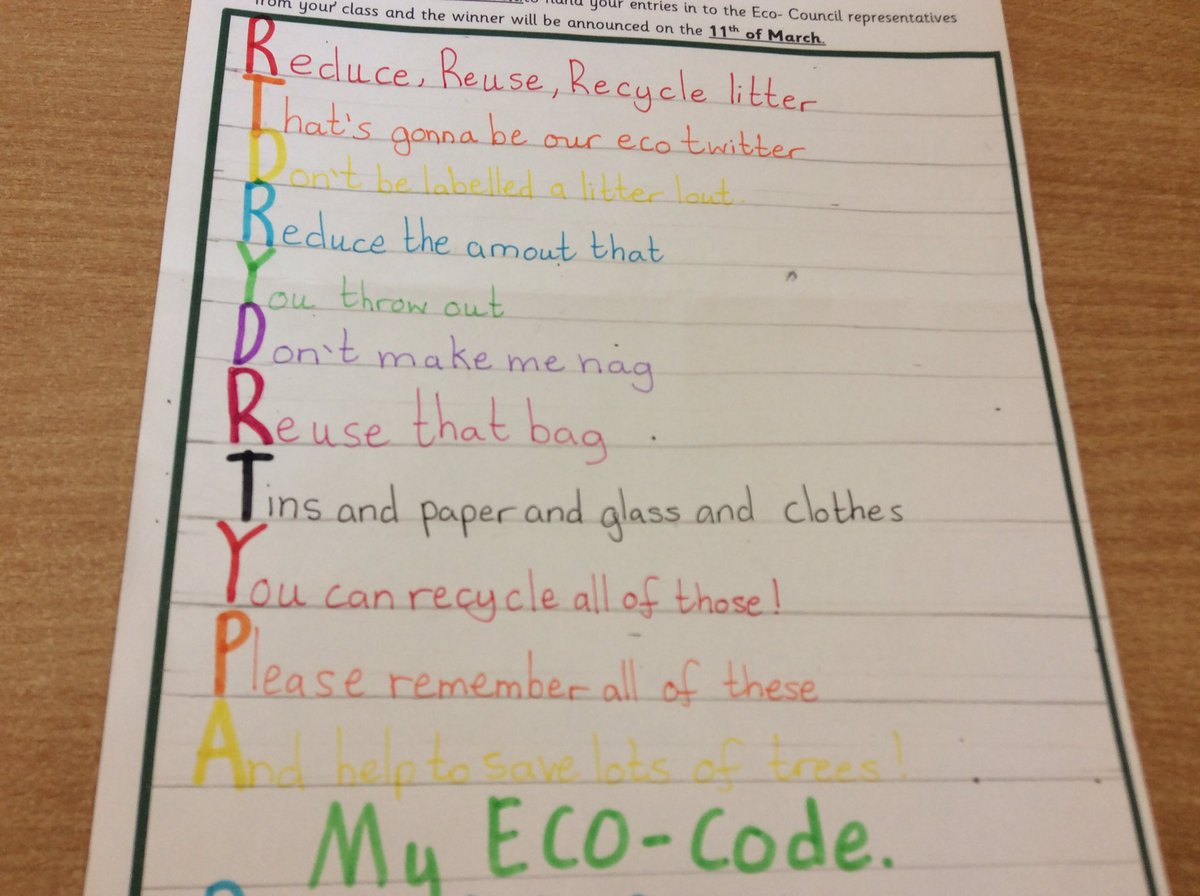 hand your entries in to the Eco- Council representatives
from your class and the winner will be announced on the 11th of March.
Reduce, Reuse, Recycle litter
That's gonna be our eco twitter
Don't be labelled a litter lout.
Reduce the amout that
You throw out
Don't make me nag
Reuse that bag
Tins and paper and glass and clothes
You can recycle all of those!
Please remember all of these
And help to save lots of trees!
My ECO-Code.